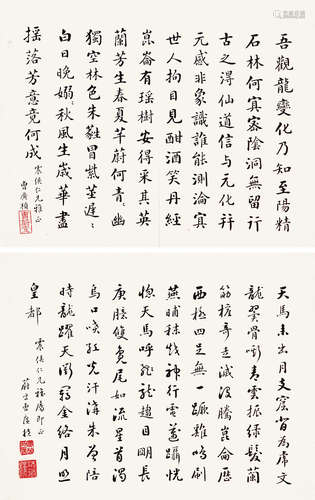 吾觀龍變化乃知至陽精
石林何冥密陰洞無留行
古之得仙道信與元化并
元感非象識誰能測淪冥
世人拘目見酣酒笑丹經
崑崙有瑤樹安得采其英
蘭芳生春夏芊蔚何青〻幽
獨空林色朱蕤冒紫莖遲〻
白日晚嫋〻秋風生歲華盡
搖落芳意竟何成
震侯仁兄雅正
曹廣楨
天馬來出月支窟背為虎文
龍翼骨嘶青雲振綠髮蘭
筋權奇走滅沒騰崑崙歷
西極四足無一蹶雞鳴刷
燕晡秣越神行電邁躡恍
惚天馬呼飛龍趨目明長
庚臆雙鳧尾如流星首渴
烏口噴紅光汗溝朱曾陪
時龍躍天衢羈金絡月照
皇都
震侯仁兄即正
曹廣楨